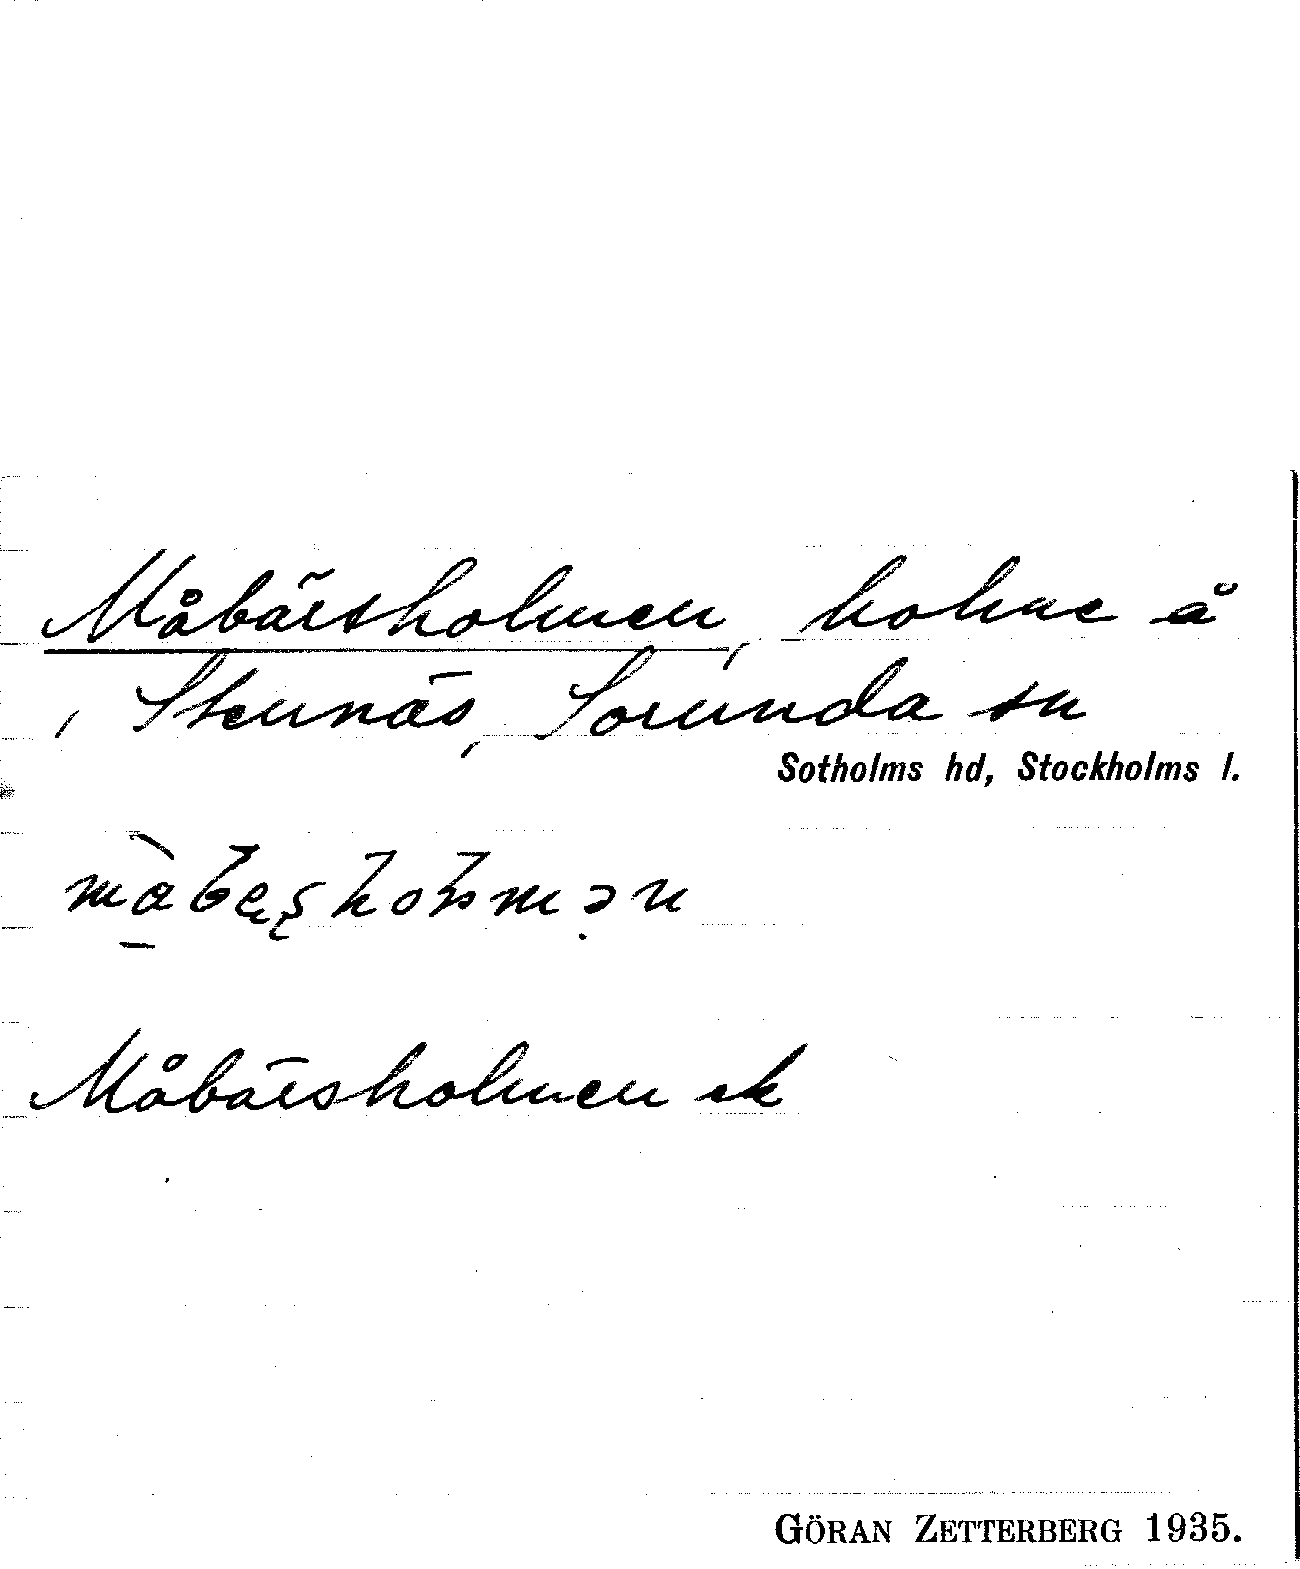 Måbärsholmen, holme å
, Stennäs, Sorunda sn
Sotholms hd, Stockholms l.
Måbärsholmen ek
GÖRAN ZETTERBERG 1935.